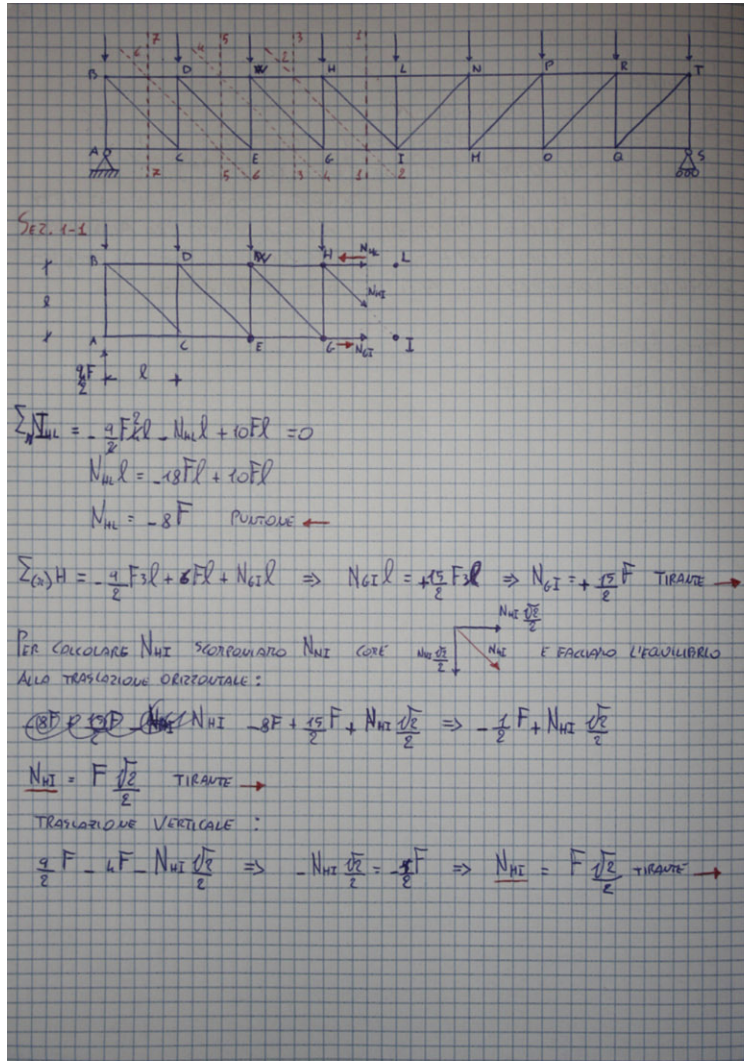 7 5 3 1
6 4 2
B D W H L N P R T
A C E G I M O Q S
7 5 6 3 4 1 2
SEZ. 1-1
B D W H N_HL L
l N_HI
A C E G N_GI I
9/2 F l
Σ_(M) I = - 9/2 F 4l - N_HL l + 10Fl = 0
N_HL l = -18Fl + 10Fl
N_HL = -8F PUNTONE ←
Σ_(M) H = - 9/2 F3l + 6Fl + N_GI l ⇒ N_GI l = + 15/2 F3l ⇒ N_GI = + 15/2 F TIRANTE →
N_HI √2/2
PER CALCOLARE N_HI SCOMPONIAMO N_HI COME N_HI √2/2 N_HI E FACCIAMO L'EQUILIBRIO
ALLA TRASLAZIONE ORIZZONTALE:
N_HI -8F + 15/2 F + N_HI √2/2 ⇒ - 1/2 F + N_HI √2/2
N_HI = F √2/2 TIRANTE →
TRASLAZIONE VERTICALE:
9/2 F - 4F - N_HI √2/2 ⇒ - N_HI √2/2 = - 1/2 F ⇒ N_HI = F √2/2 TIRANTE →